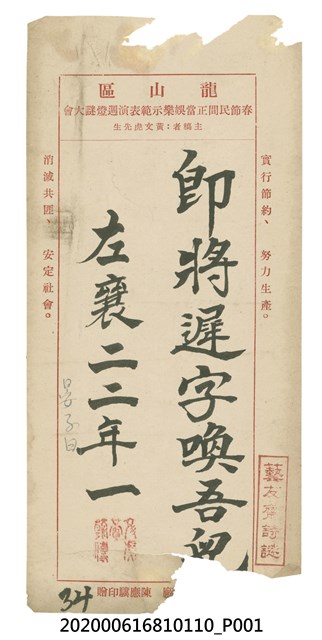 龍山區
春節民間正當娛樂示範表演週燈謎大會
主稿者：黃文虎先生
實行節約、努力生產。
即將遲字喚吾兒
左襄二二年一
消滅共匪、安定社會。
藝友齊詩謎
陳應驕印贈
34
202000616810110_P001